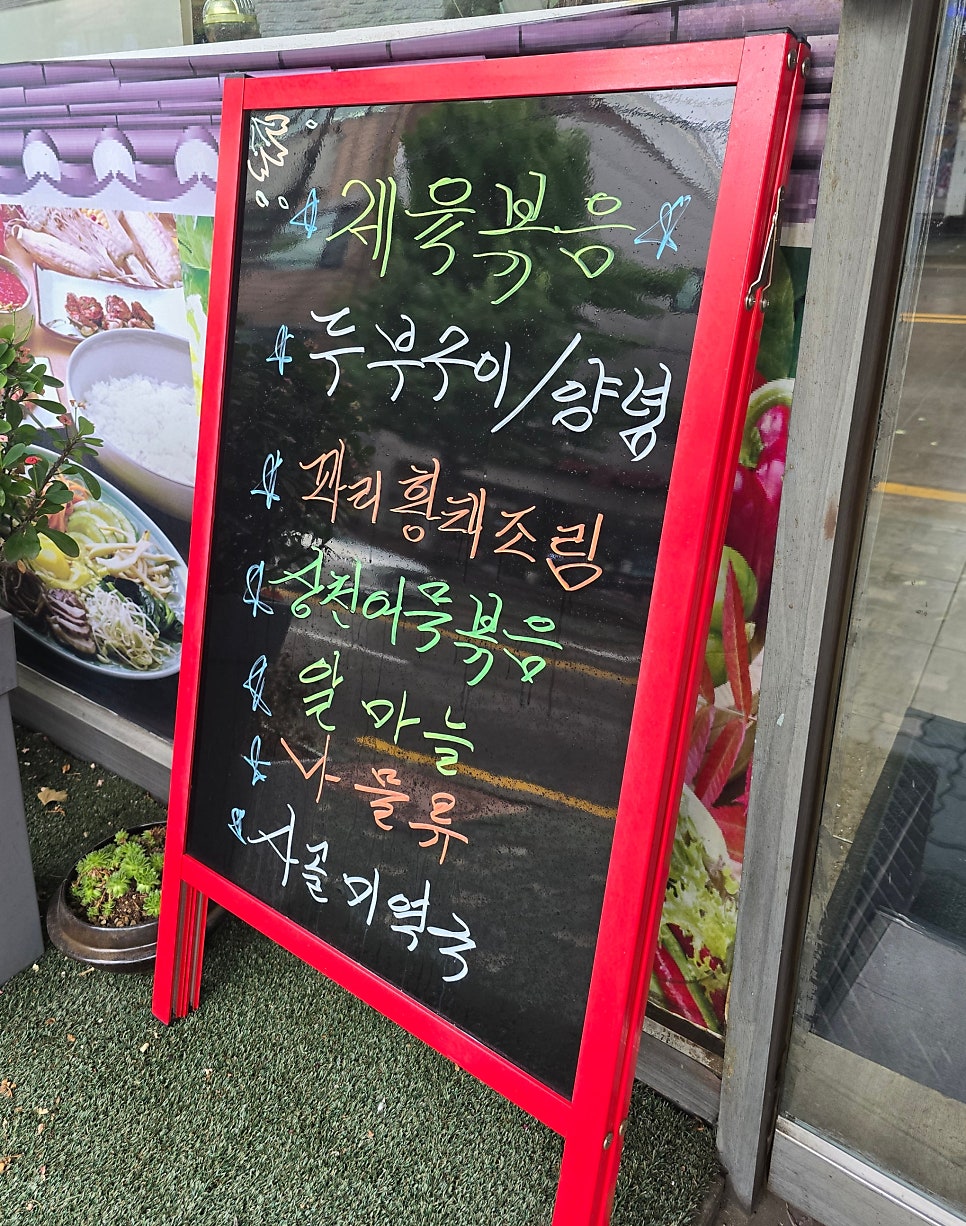 제육볶음
두부구이/양념
꽈리황태조림
삼진어묵볶음
알마늘
나물류
사골미역국